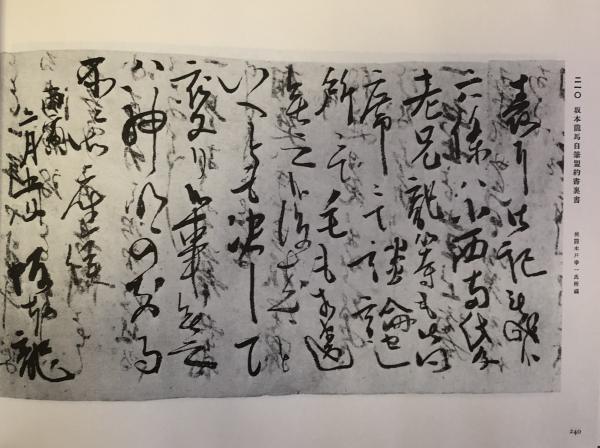 二一〇 坂本龍馬自筆盟約書裏書
侯爵木戸幸一氏所蔵
表に御記被成候
六條ハ小西両氏及
老兄龍等も御同
席ニて談論セし
所ニて毛も相違
無之候後来と
いへとも決して
変り候事無之
ハ神明の知る
所ニ御座候
丙寅
二月五日 坂本龍
240